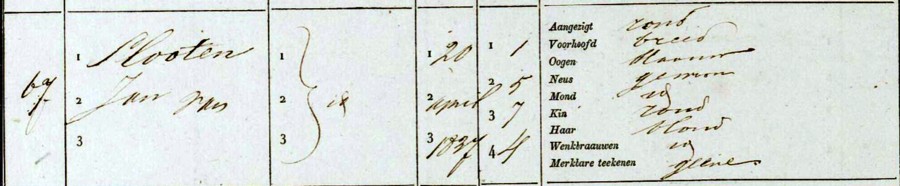 67
1 Slooten
2 Jan van
3
1
2 id
3
1 20
2 april
3 1837
1 1
2 5
3 7
4 4
Aangezigt rond
Voorhoofd breed
Oogen blaauw
Neus gewoon
Mond id
Kin rond
Haar blond
Wenkbraauwen id
Merklare teekenen geene